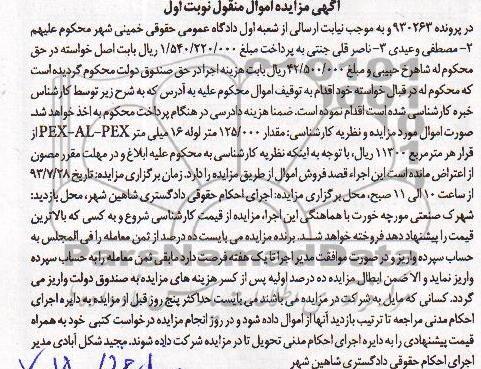 آگهی مزایده اموال منقول نوبت اول
در پرونده ۹۳۰۲۶۳ و به موجب نیابت ارسالی از شعبه اول دادگاه عمومی حقوقی خمینی شهر محکوم علیهم
۲- مصطفی وعیدی ۳- ناصر قلی جنتی به پرداخت مبلغ ۱/۵۴۰/۲۲۰/۰۰۰ ریال بابت اصل خواسته در حق
محکوم له شاهرخ حبیبی و مبلغ ۴۲/۵۰۰/۰۰۰ ریال بابت هزینه اجرا در حق صندوق دولت محکوم گردیده است
که محکوم له در قبال خواسته خود اقدام به توقیف اموال محکوم علیه به آدرس که به شرح زیر توسط کارشناس
خبره کارشناسی شده است اقدام نموده است. ضمنا هزینه دادرسی در هنگام پرداخت محکوم به اخذ خواهد شد.
صورت اموال مورد مزایده و نظریه کارشناسی: مقدار ۱۲۵/۰۰۰ متر لوله ۱۶ میلی متر PEX-AL-PEX از
قرار هر مترمربع ۱۱۳۰۰ ریال، با توجه به اینکه نظریه کارشناسی به محکوم علیه ابلاغ و در مهلت مقرر مصون
از اعتراض مانده است این اجراء قصد فروش اموال از طریق مزایده را دارد. زمان برگزاری مزایده: تاریخ ۹۳/۷/۲۸
از ساعت ۱۰ الی ۱۱ صبح، محل برگزاری مزایده: اجرای احکام حقوقی دادگستری شاهین شهر، محل بازدید:
شهرک صنعتی مورچه خورت با هماهنگی این اجراء، مزایده از قیمت کارشناسی شروع و به کسی که بالاترین
قیمت را پیشنهاد دهد فروخته خواهد شد. برنده مزایده می بایست ده درصد از ثمن معامله را فی المجلس به
حساب سپرده واریز و در صورت موافقت مدیر اجرا تا یک هفته فرصت دارد مابقی ثمن معامله را به حساب سپرده
واریز نماید و الا ضمن ابطال مزایده ده درصد اولیه پس از کسر هزینه های مزایده به صندوق دولت واریز می
گردد. کسانی که مایل به شرکت در مزایده می باشند می بایست حداکثر پنج روز قبل از مزایده به دایره اجرای
احکام مدنی مراجعه تا ترتیب بازدید آنها از اموال داده شود و در روز انجام مزایده درخواست کتبی خود به همراه
قیمت پیشنهادی را به دایره اجرای احکام مدنی تحویل تا در مزایده شرکت داده شوند. مجید شکل آبادی مدیر
اجرای احکام حقوقی دادگستری شاهین شهر